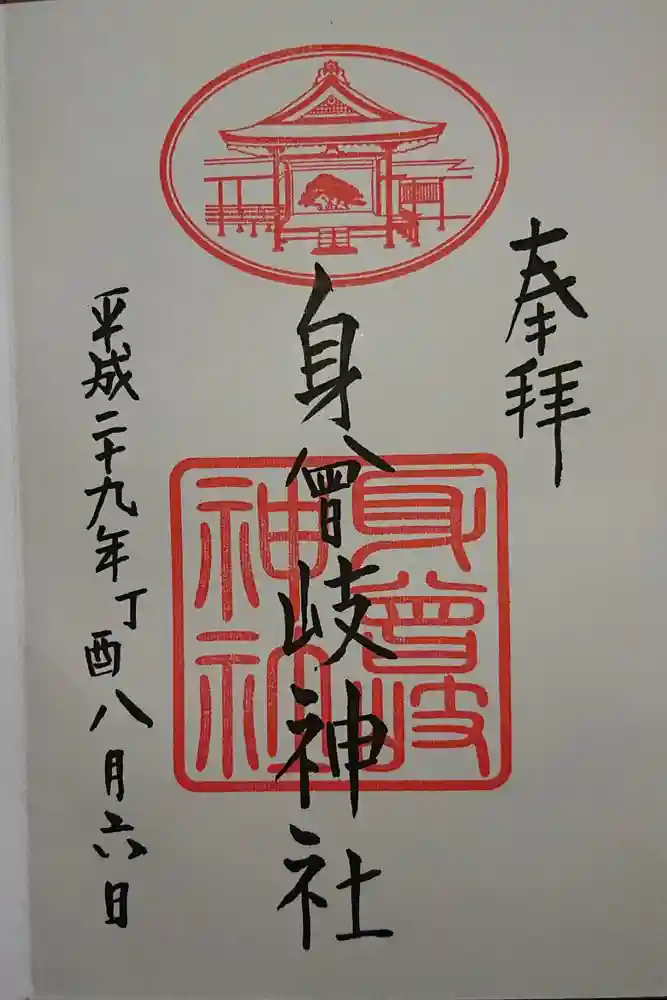 奉拝
身曾岐神社
身曾岐神社
平成二十九年丁酉八月六日